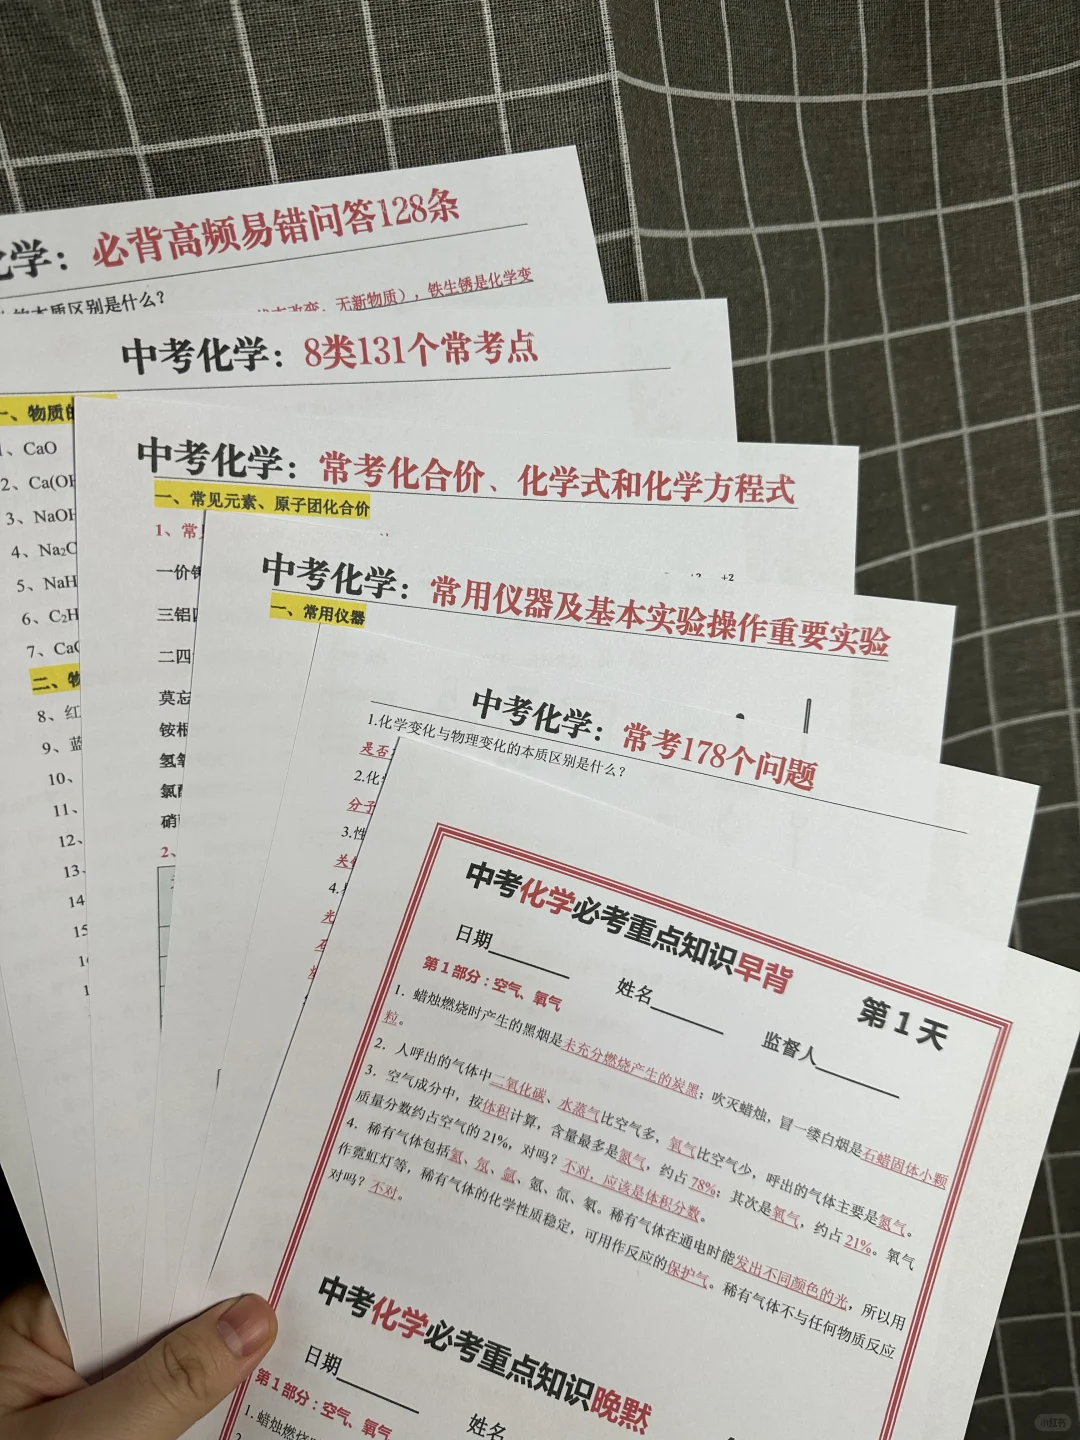 化学：必背高频易错问答128条
本质区别是什么？
无新物质），铁生锈是化学变
中考化学：8类131个常考点
一、物质的
1、CaO
2、Ca(OH
3、NaOH
4、Na₂C
5、NaH
6、C₂H
7、CaC
二、物
8、红
9、蓝
10、
11、
12、
13、
14
15
中考化学：常考化合价、化学式和化学方程式
一、常见元素、原子团化合价
1、常
+2 +2
一价钾
三铝四
二四
莫忘
铵根
氢氧
氯酸
硝
2、
中考化学：常用仪器及基本实验操作重要实验
一、常用仪器
中考化学：常考178个问题
1.化学变化与物理变化的本质区别是什么？
是否
2.化
分子
3.性
关
4.
光
石
中考化学必考重点知识早背 第1天
日期 姓名 监督人
第1部分：空气、氧气
1. 蜡烛燃烧时产生的黑烟是未充分燃烧产生的炭黑；吹灭蜡烛，冒一缕白烟是石蜡固体小颗
粒。
2. 人呼出的气体中二氧化碳、水蒸气比空气多，氧气比空气少，呼出的气体主要是氮气。
3. 空气成分中，按体积计算，含量最多是氮气，约占78%；其次是氧气，约占21%。氧气
质量分数约占空气的21%，对吗？不对，应该是体积分数。
4. 稀有气体包括氦、氖、氩、氪、氙、氡。稀有气体在通电时能发出不同颜色的光，所以用
作霓虹灯等，稀有气体的化学性质稳定，可用作反应的保护气。稀有气体不与任何物质反应
对吗？不对。
中考化学必考重点知识晚默
日期 姓名
第1部分：空气、氧气
1. 蜡烛燃烧
2.
小红书